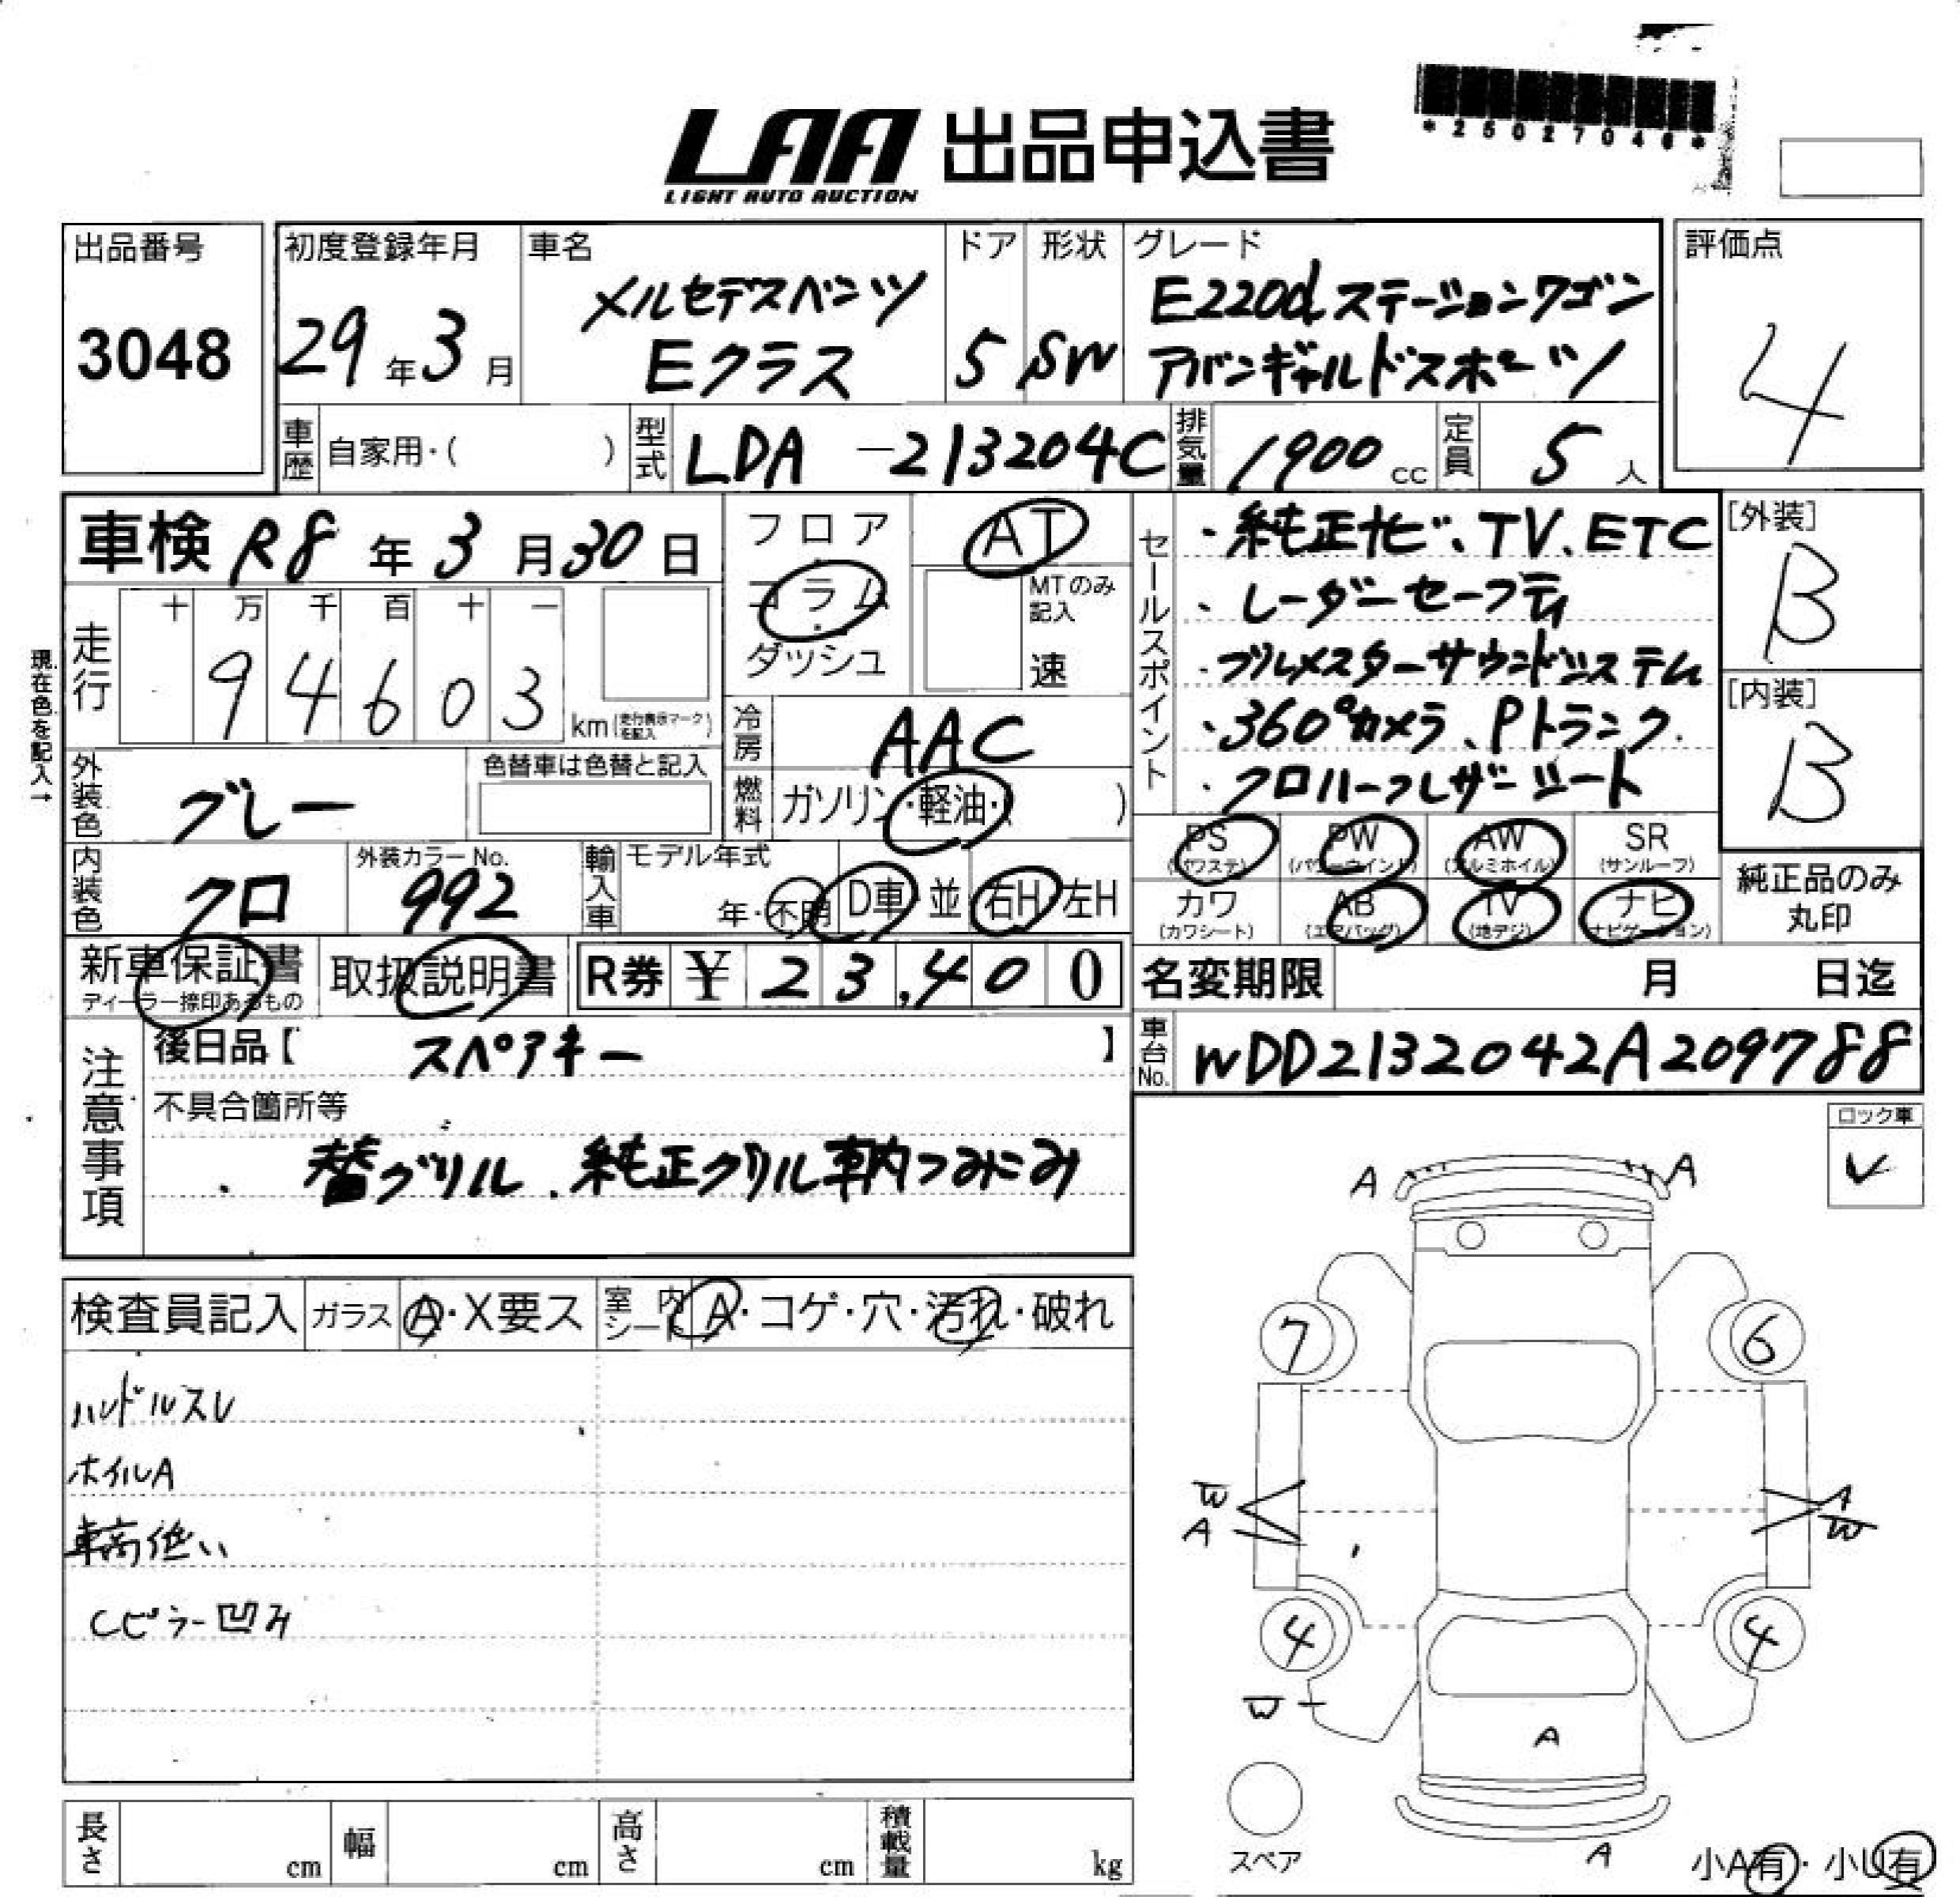 LAA 出品申込書
LIGHT AUTO AUCTION
*25027046*
出品番号
3048
初度登録年月
29年3月
車名
メルセデスベンツ
Eクラス
ドア
5
形状
SW
グレード
E220dステーションワゴン
アバンギャルドスポーツ
評価点
4
車歴 自家用・( )
型式 LDA-213204C
排気量 1900cc
定員 5人
車検 R8年3月30日
フロア
コラム
ダッシュ
AT
MTのみ記入
速
セールスポイント
・純正ナビ、TV、ETC
・レーダーセーフティ
・ブルメスターサウンドシステム
・360°カメラ、Pトランク
・クロハーフレザーシート
[外装]
B
[内装]
B
現在色を記入→
走行
十 万 千 百 十 一
94603
km(走行表示マークを記入)
冷房 AAC
外装色 グレー
色替車は色替と記入
燃料 ガソリン・軽油・( )
内装色 クロ
外装カラーNo.
992
輸入車
モデル年式
年・不明
D車・並
右H・左H
PS (パワステ)
PW (パワーウインド)
AW (アルミホイル)
SR (サンルーフ)
カワ (カワシート)
AB (エアバッグ)
TV (地デジ)
ナビ (ナビゲーション)
純正品のみ丸印
新車保証書
ディーラー捺印あるもの
取扱説明書
R券 ¥23,400
名変期限 月 日迄
車台No. WDD2132042A209788
注意事項
後日品【 スペアキー 】
不具合箇所等
・替グリル、純正グリル車内つみこみ
ロック車
✓
検査員記入
ガラス A・X要ス
室内シート A・コゲ・穴・汚れ・破れ
ハンドルスレ
ホイルA
車高低い
Cピラー凹み
A A
7 6
W A
A W
4 4
W
A
スペア
A
小A有・小U有
長さ cm
幅 cm
高さ cm
積載量 kg